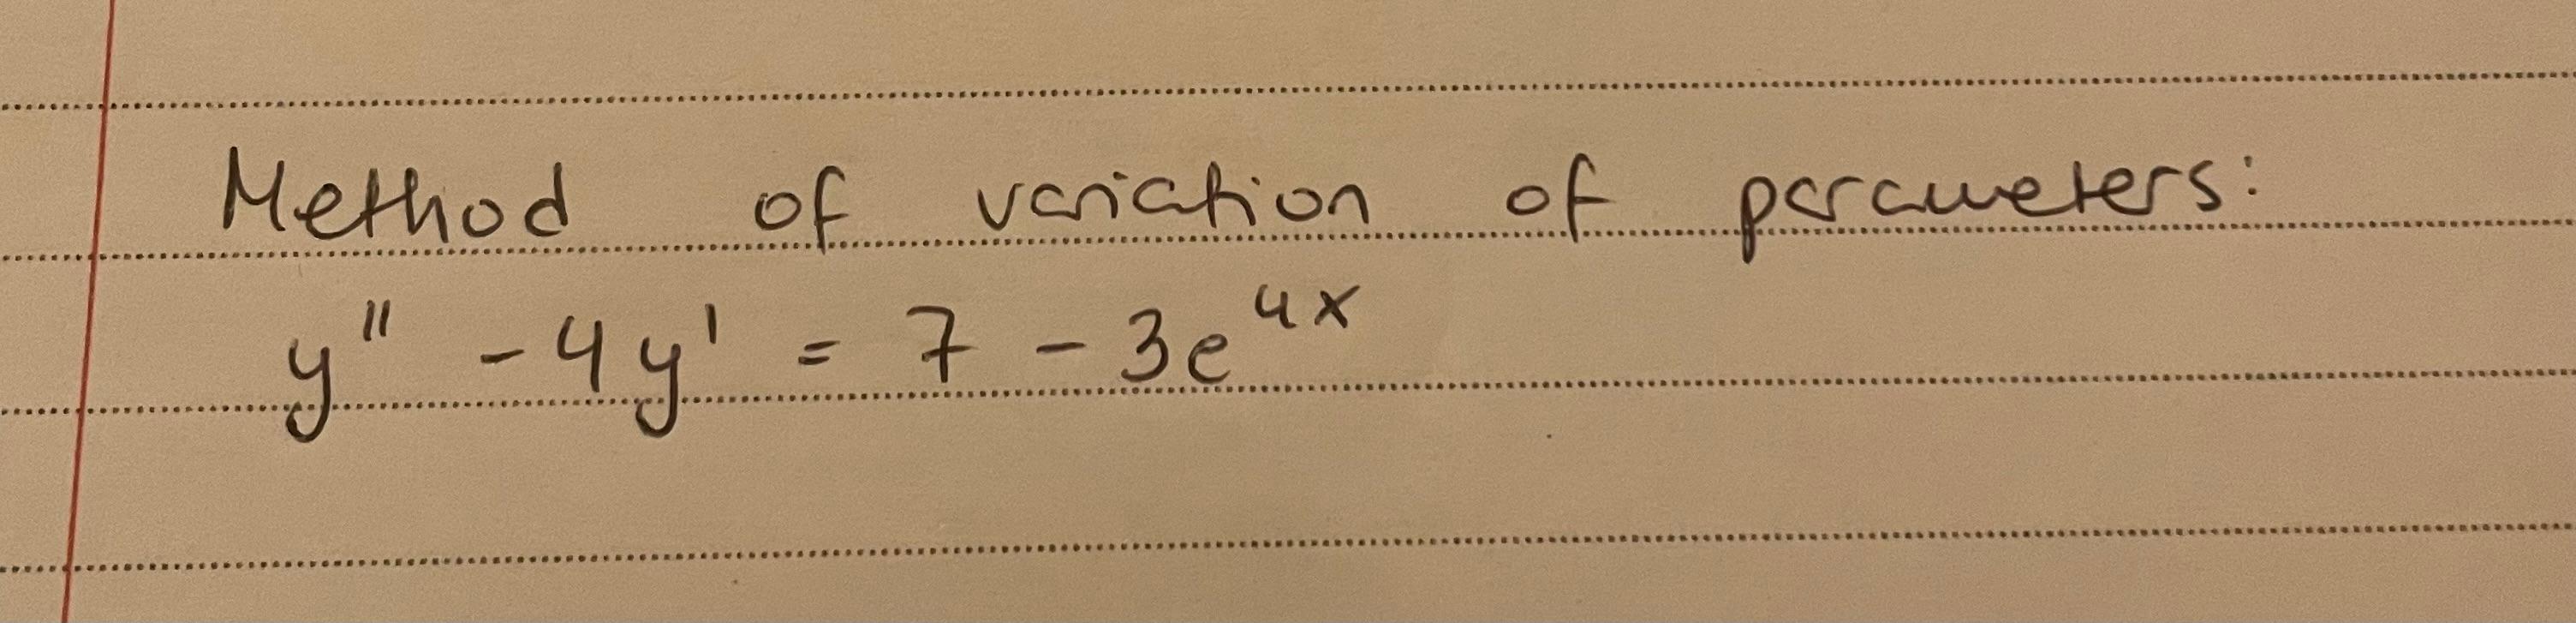 Method of variation of parameters:
y'' - 4y' = 7 - 3e^{4x}